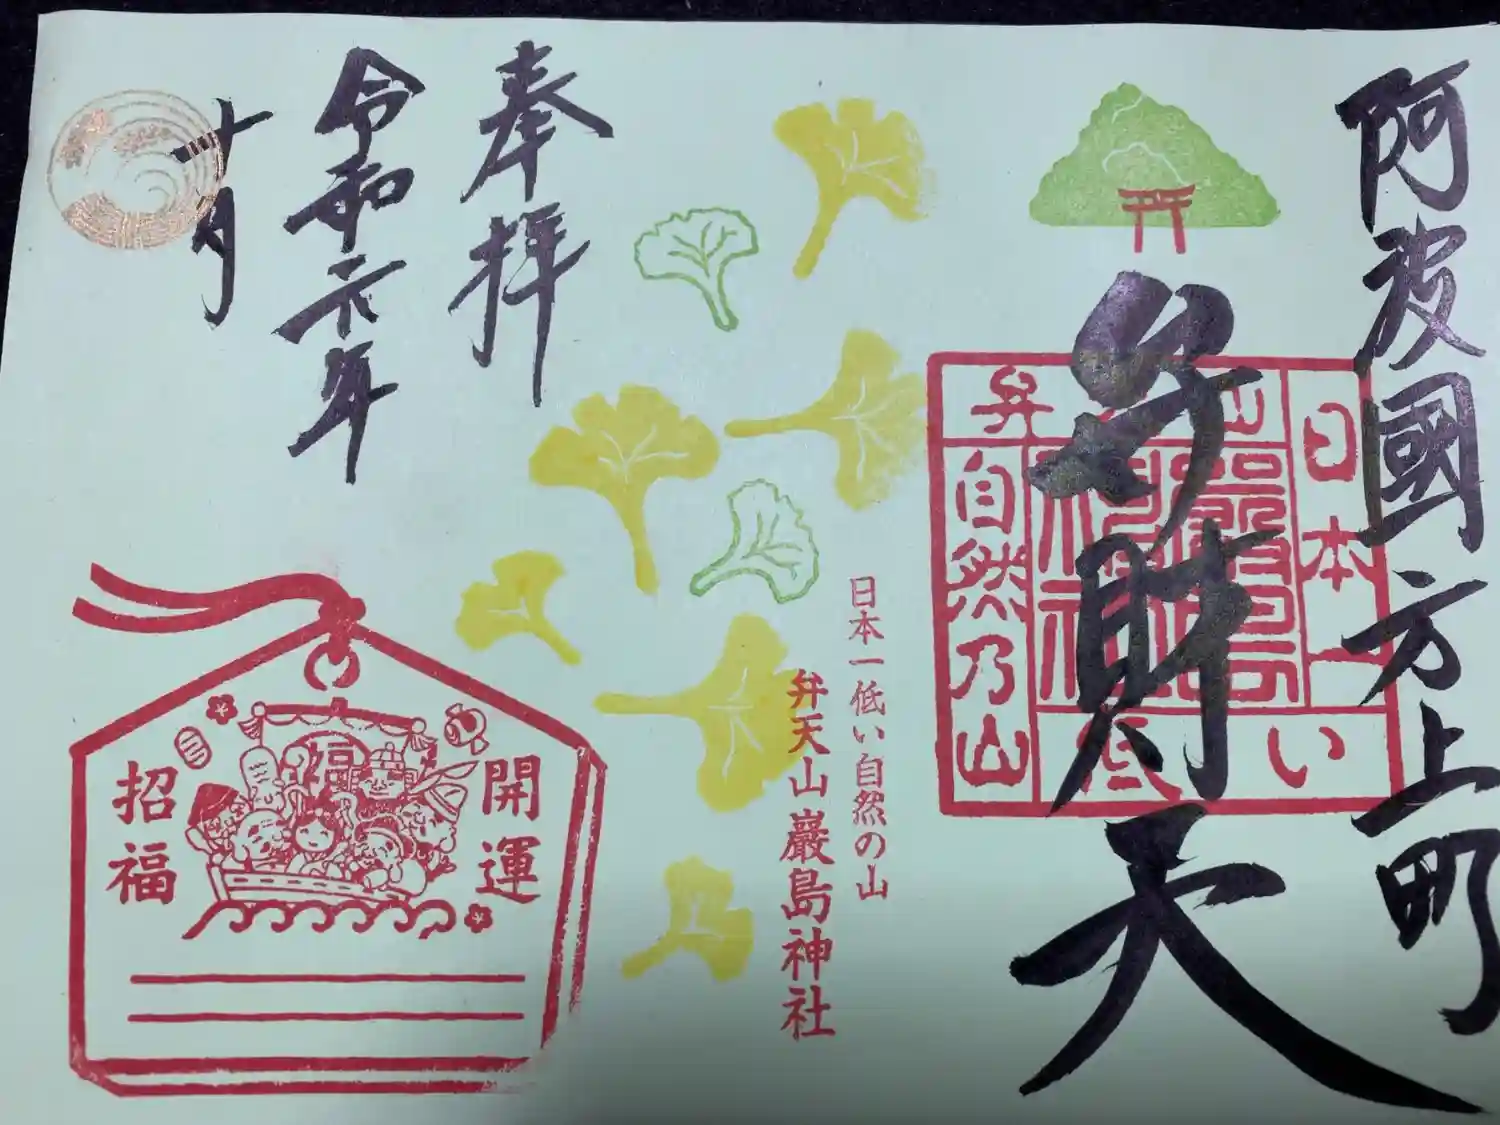 阿波國方上町
弁財天
日本一
い
山
弁
自然乃山
嚴島
神社
日本一低い自然の山
弁天山巖島神社
奉拝
令和六年
十一月
開運
招福
福